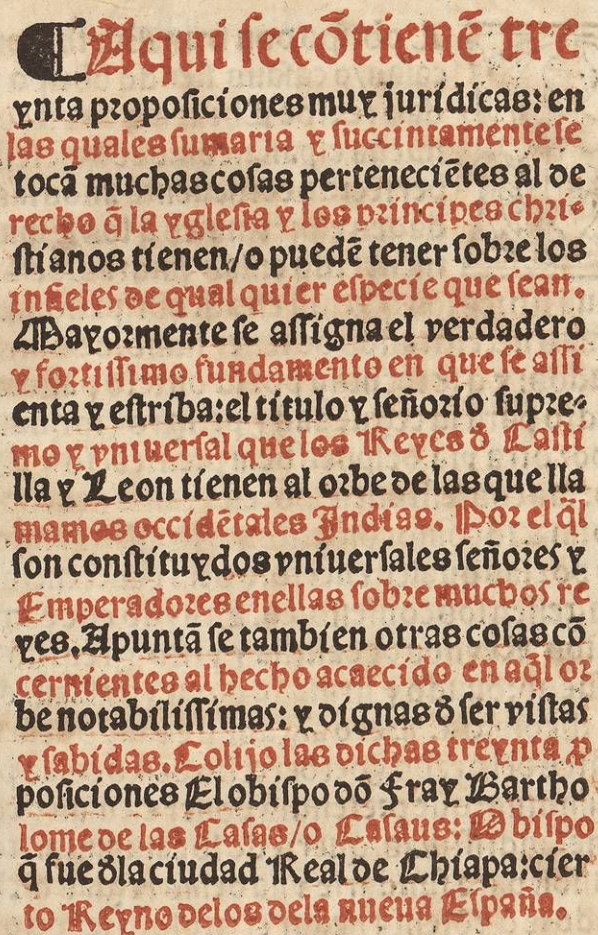 Aqui se cõtienẽ tre
ynta proposiciones muy juridicas: en
las quales sumaria y succintamente se
tocã muchas cosas perteneciẽtes al de
recho q̃ la yglesia y los principes chri-
stianos tienen/o puedẽ tener sobre los
infieles de qual quier especie que sean.
Mayormente se assigna el verdadero
y fortissimo fundamento en que se assi
enta y estriba: el titulo y señorio supre-
mo y vniuersal que los Reyes õ Casti
lla y Leon tienen al orbe de las que lla
mamos occidẽtales Indias. Por el q̃l
son constituydos vniuersales señores y
Emperadores enellas sobre muchos re
yes. Apuntã se tambien otras cosas cõ
cernientes al hecho acaecido en aq̃l or
be notabilissimas: y dignas õ ser vistas
y sabidas. Colijo las dichas treynta ꝓ
posiciones El obispo dõ Fray Bartho
lome de las Casas/o Casaus: Obispo
q̃ fue õla ciudad Real de Chiapa: cier
to Reyno delos dela nueua España.